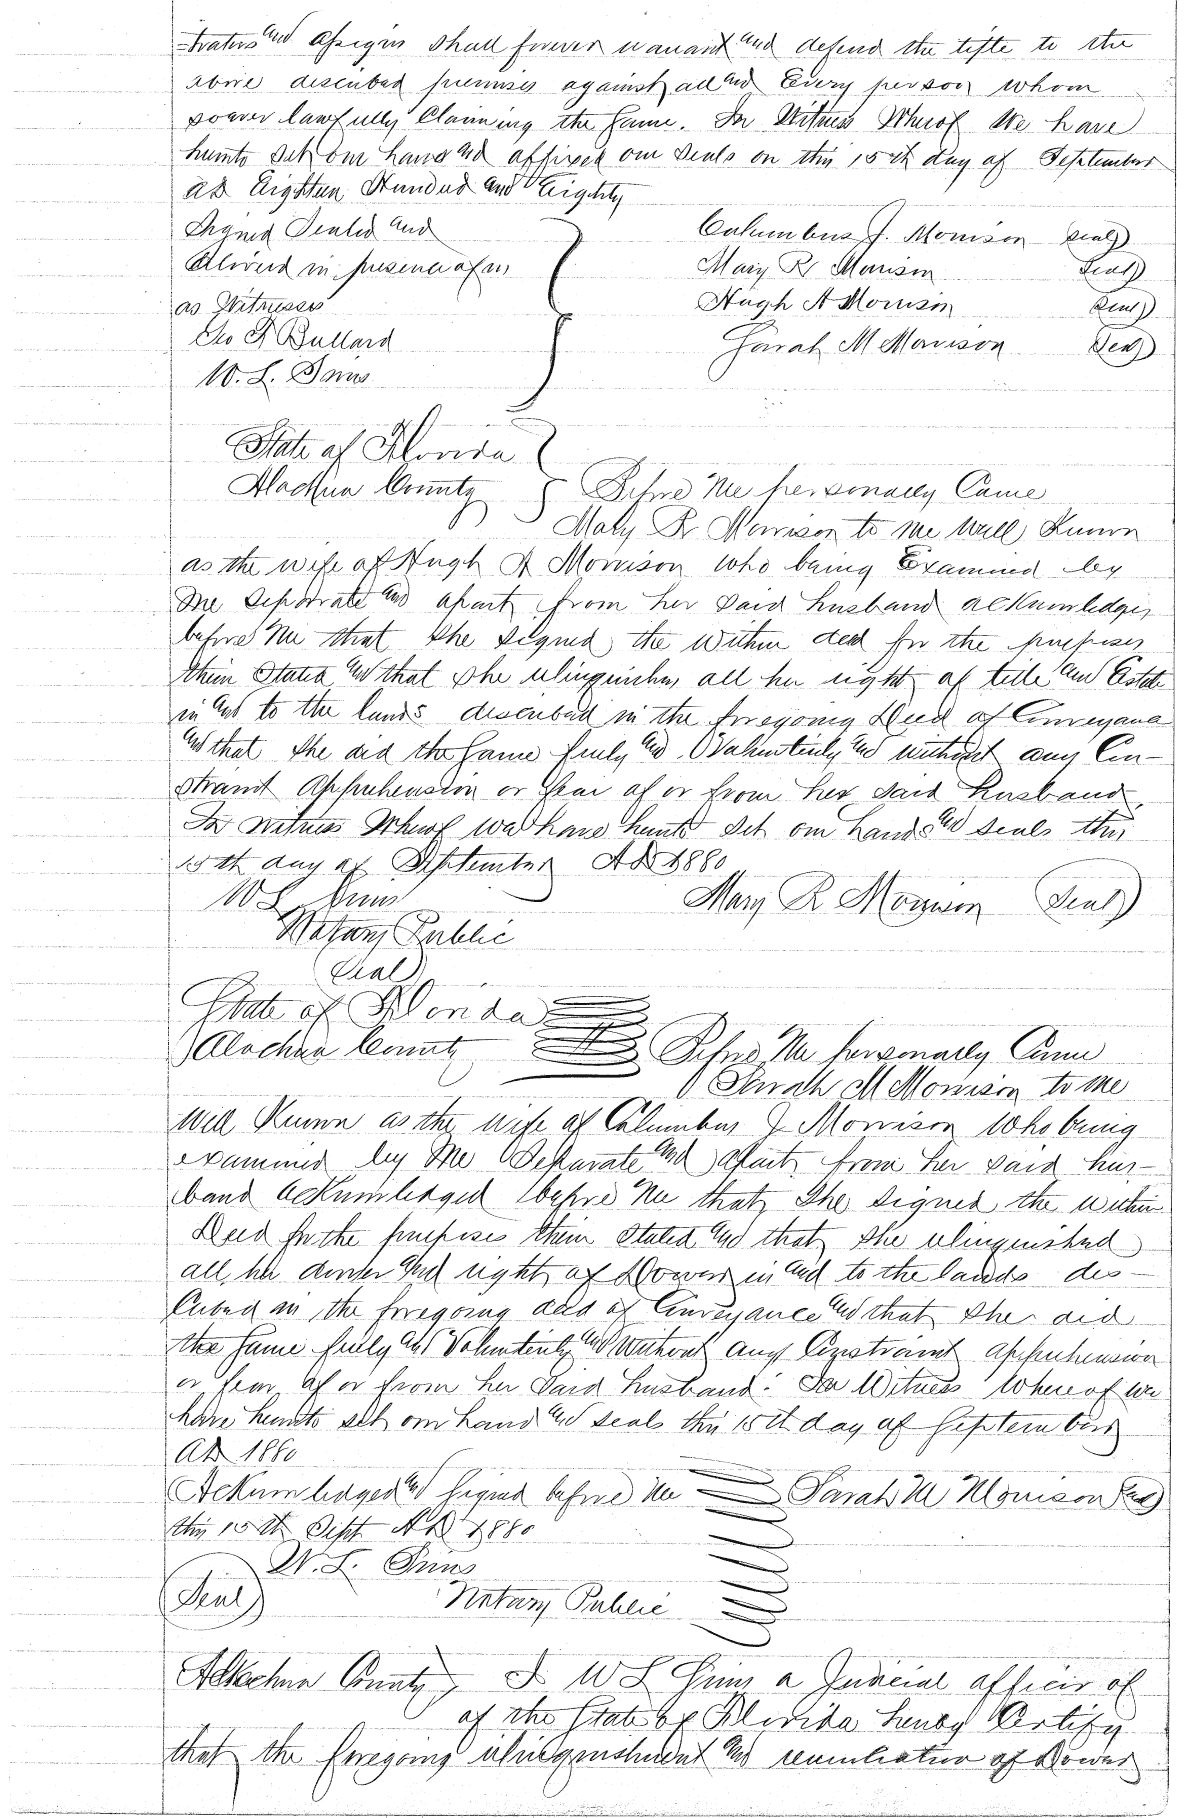 -traters and assigns shall forever warrant and defend the title to the
above described premises against all and Every person whom
soever lawfully Claiming the Same. In Witness Wherof We have
hereunto set our hands and affixed our seals on this 15th day of September
AD Eighteen Hundred and Eighty
Signed Sealed and
Delivered in presence of us
as Witnesses
Geo F Bullard
W. L.
Columbus J. Morrison (Seal)
Mary R Morrison (Seal)
Hugh A Morrison (Seal)
Sarah M Morrison (Seal)
State of Florida
Alachua County Before Me personally Came
Mary R Morrison to me Well Known
as the wife of Hugh A Morrison who being Examined by
me separate and apart from her said husband acknowledges
before me that she signed the within deed for the purposes
therein Stated and that she relinquishes all her right of title and Estate
in and to the lands described in the foregoing Deed of Conveyance
and that she did the Same freely and Voluntirily and without any Con-
straint Apprehension or fear of or from her said husband.
In witness Wherof we have hereunto set our hands and seals this
15th day of September AD 1880
W L
Mary R Morrison (Seal)
Notary Public
(Seal)
State of Florida
Alachua County Before Me personally Came
Sarah M Morrison to me
well Known as the wife of Columbus J Morrison Who being
examined by Me Separate and apart from her said hus-
band acknowledged before me that she signed the within
Deed for the purposes therein Stated and that she relinquished
all her dower and right of Dower in and to the lands des-
cribed in the foregoing deed of Conveyance and that she did
the Same freely and Voluntirily and Without any Constraint apprehension
or fear of or from her said husband. In Witness Whereof we
have hereunto set our hand and seals this 15th day of September
AD 1880
Acknowledged and Signed before Me Sarah M Morrison (Seal)
this 15th Sept AD 1880
W. L.
(Seal) Notary Public
Alachua County I W L a Judicial officer of
of the State of Florida hereby Certify
that the foregoing relinquishment and renunciation of Dower